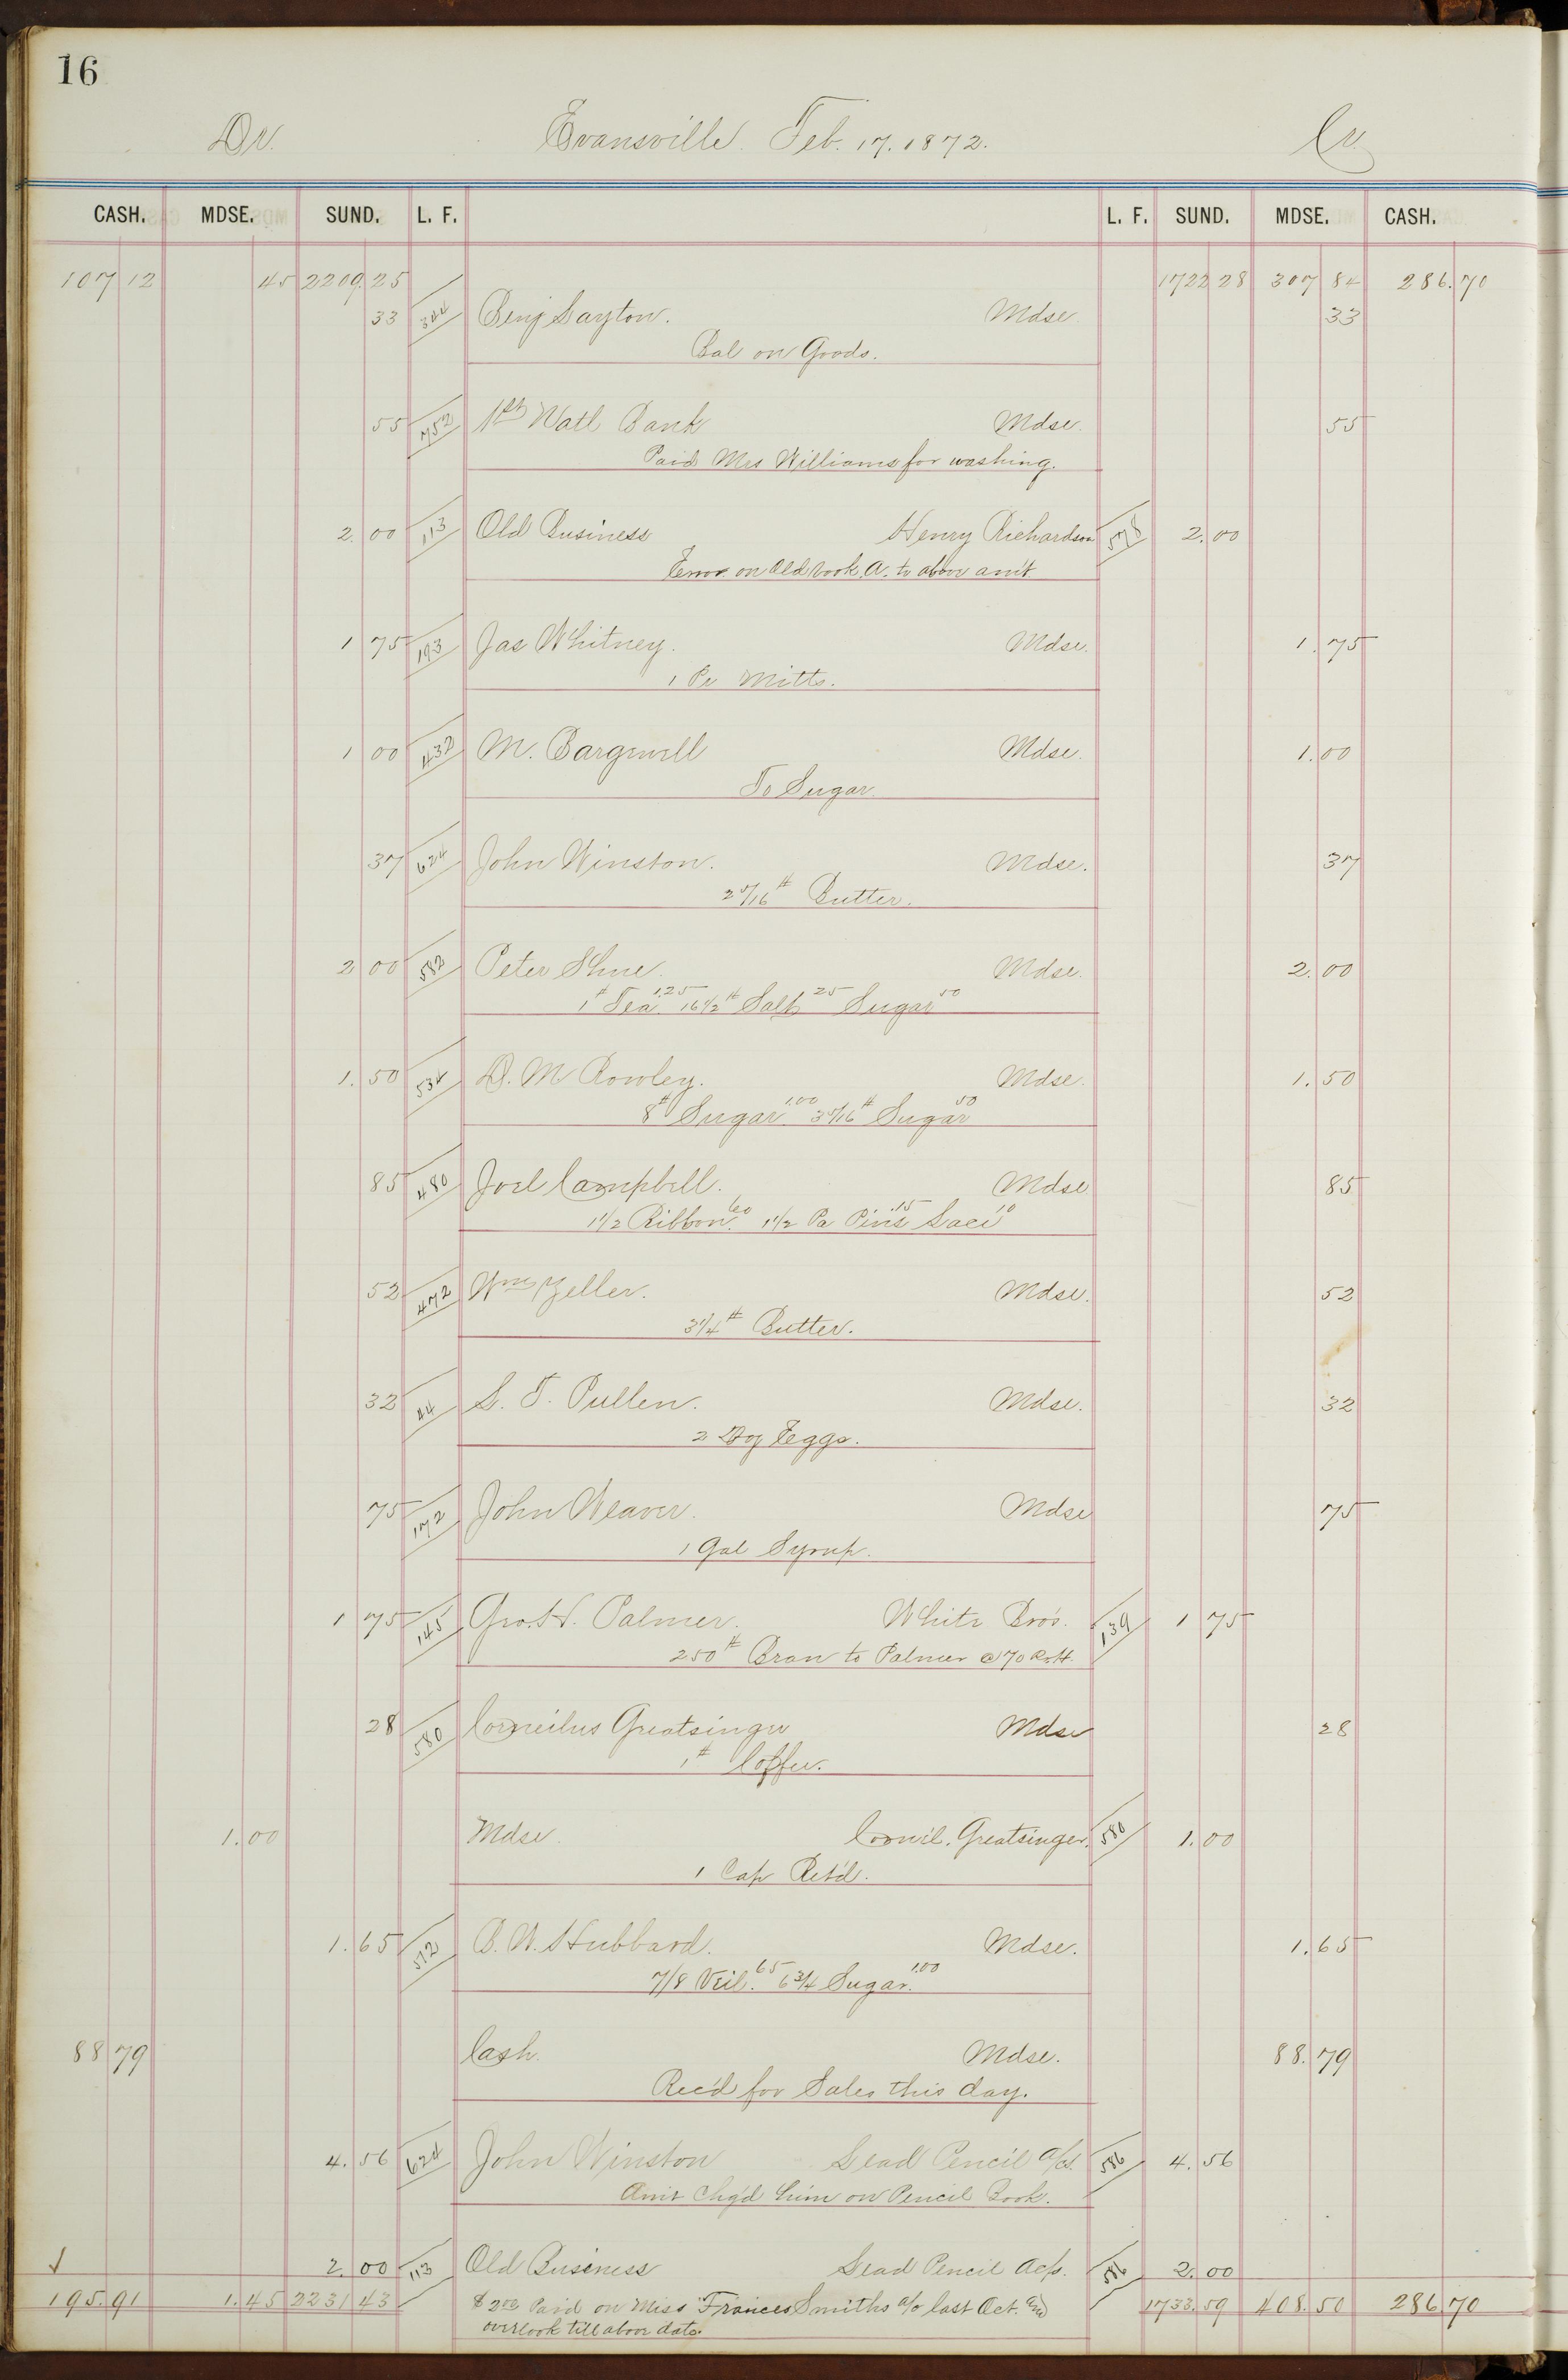 16
Dr. Evansville. Feb. 17. 1872. Cr.
CASH. MDSE. SUND. L. F. L. F. SUND. MDSE. CASH.
107 12 45 2209.25 1722 28 307 84 286.70
33 344 Benj Layton. Mdse. 33
Bal on Goods.
55 752 1st Natl Bank Mdse. 55
Paid Mrs Williams for washing.
2.00 113 Old Business Henry Richardson 578 2.00
Error on Old book A. to above am't
1 75 193 Jas Whitney. Mdse. 1.75
1 Pr Mitts.
1 00 432 M. Bargewell Mdse. 1.00
To Sugar.
37 624 John Winston. Mdse. 37
2 5/16 # Butter.
2 00 582 Peter Shue. Mdse. 2.00
1# Tea. 1.25 16 1/2 # Salt 25 Sugar 50
1.50 534 D. M Rowley. Mdse. 1.50
8# Sugar 1.00 3 5/16 # Sugar 50
85 480 Joel Campbell. Mdse 85
1 1/2 Ribbon. 60 1 1/2 Pa Pins .15 Lace 10
52 472 Wm Zeller. Mdse. 52
3 1/4 # Butter.
32 44 L. T. Pullen. Mdse. 32
2 Doz Eggs.
75 172 John Weaver. Mdse 75
1 Gal Syrup.
1 75 145 Geo. H. Palmer. White Bro's. 139 1 75
250 # Bran to Palmer @ 70
28 580 Corneilus Greatsinger Mdse 28
1# Coffee.
1.00 Mdse. Cornil. Greatsinger. 580 1.00
1 Cap Ret'd.
1.65 572 B. W. Hubbard. Mdse. 1.65
7/8 Veil. 65 6 3/4 Sugar. 1.00
88 79 Cash. Mdse. 88.79
Rec'd for Sales this day.
4.56 624 John Winston Lead Pencil a/c. 586 4.56
Am't Chg'd him on Pencil Book.
2.00 113 Old Business Lead Pencil Ac/s. 586 2.00
195.91 1.45 2231 43 $2.00 Paid on Miss Frances Smiths a/c last Oct. and 1733.59 408.50 286 70
overlook till above date.